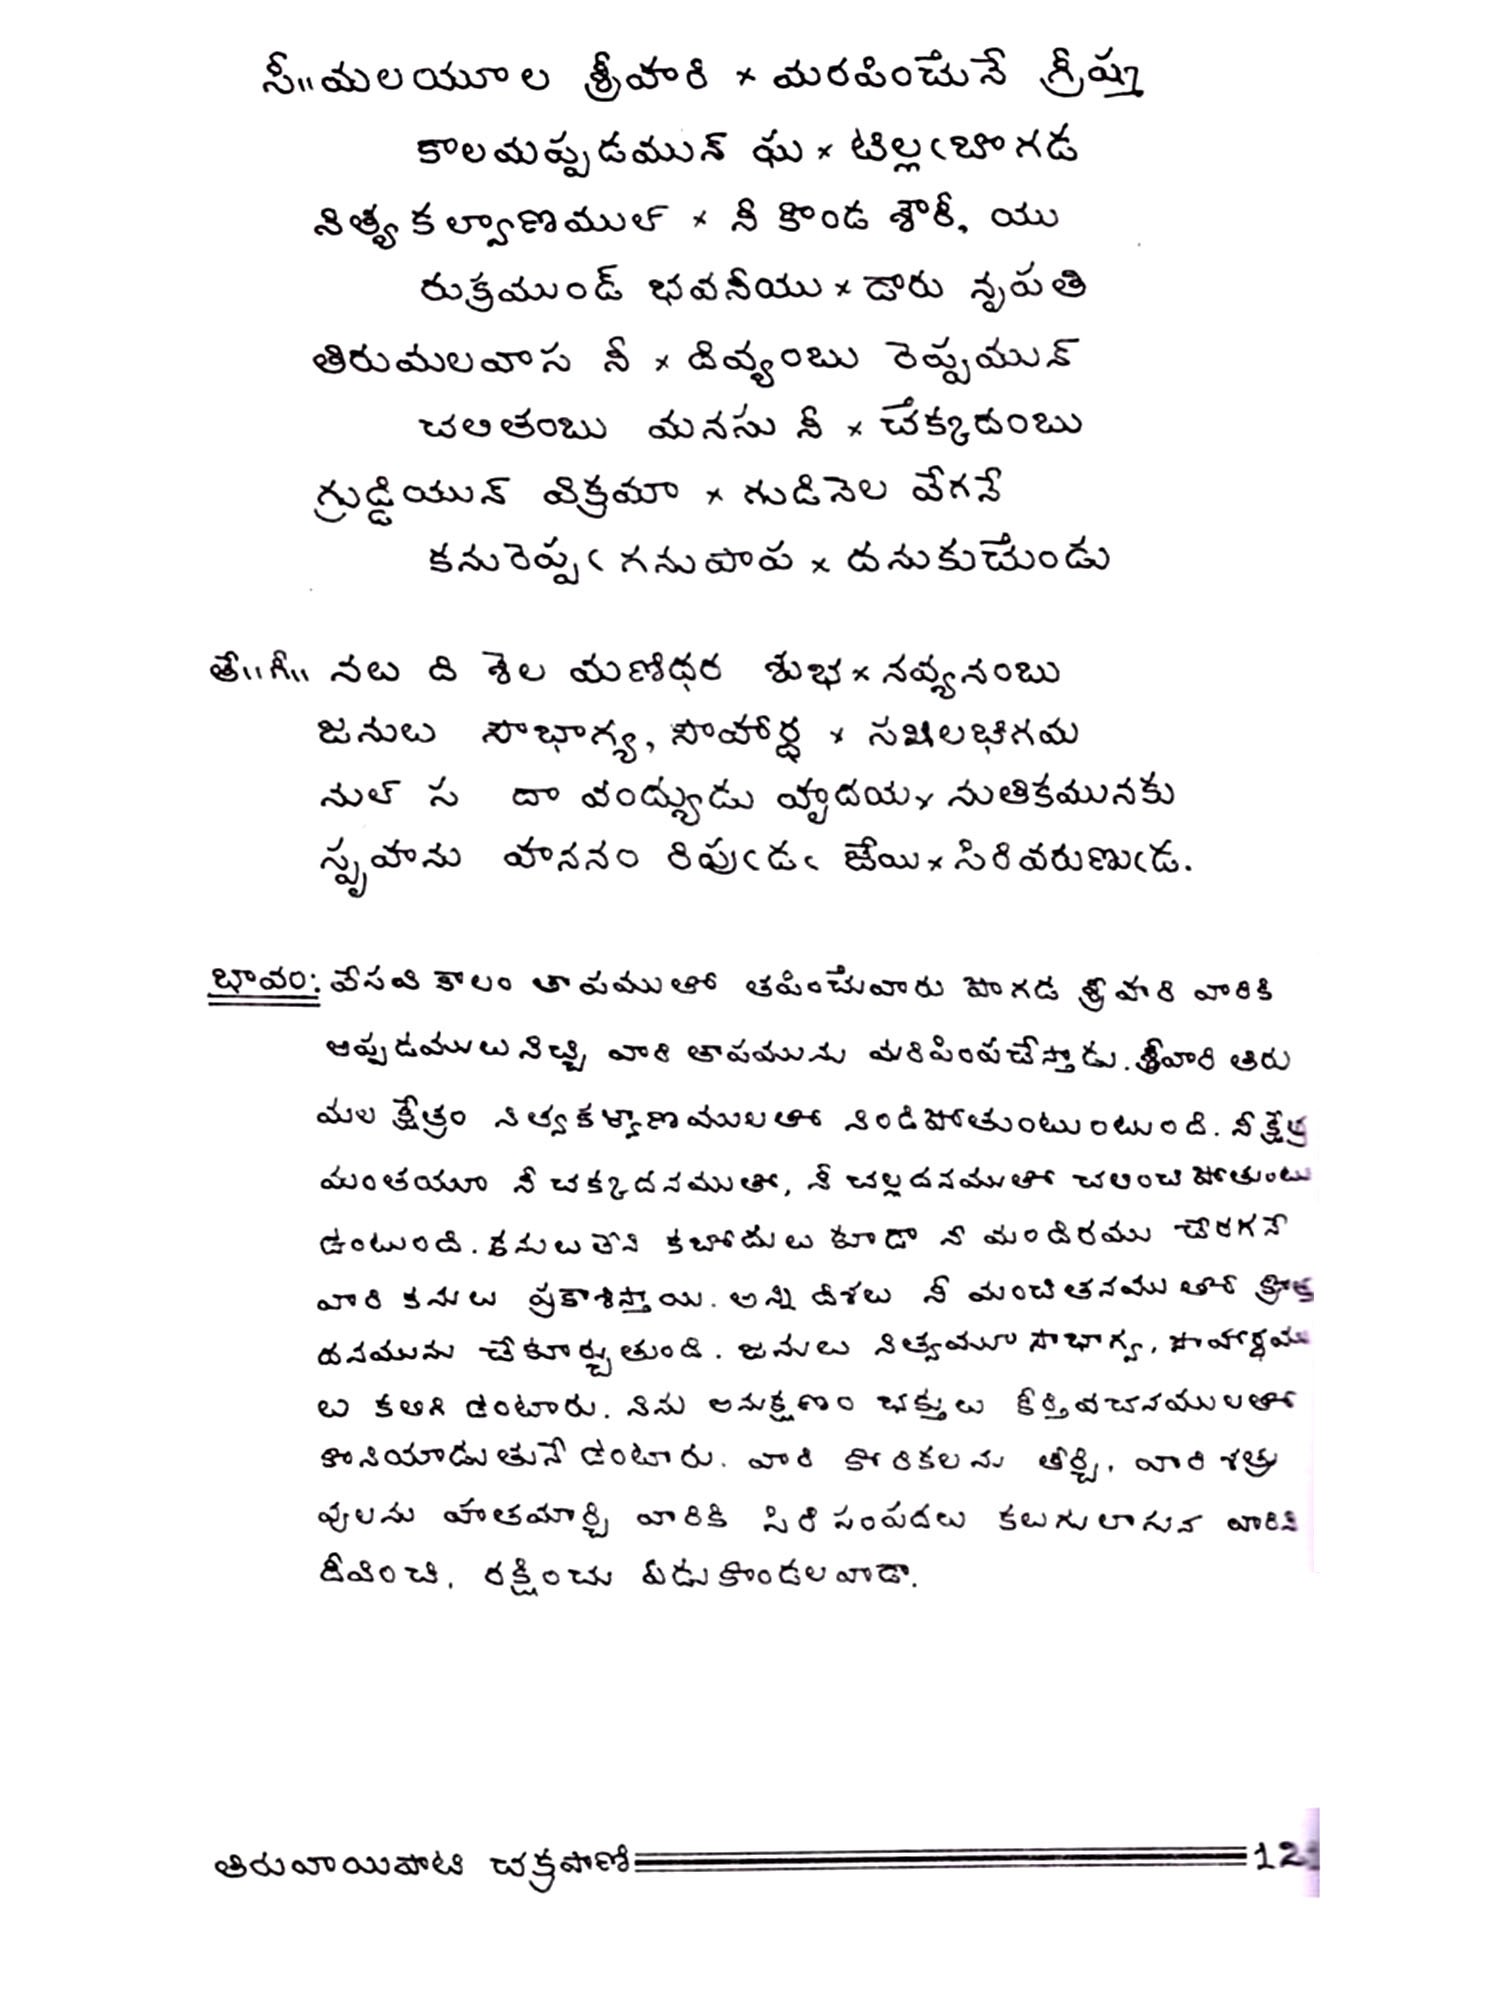 సీ॥మలయూల శ్రీహరి × మరపించునే గ్రీష్మ
కాలమప్పడమున్ ఘ × టిల్లఁబొగడ
నిత్యకల్యాణముల్ × నీ కొండ శౌరీ, యు
రుక్రముండ్ భవనీయు × డారు నృపతి
తిరుమలవాస నీ × దివ్యంబు రెప్పమున్
చలితంబు మనసు నీ × చేక్కదంబు
గ్రుడ్డియున్ విక్రమా × గుడినెల వేగనే
కనురెప్పఁ గనుపాప × దనుకుచుండు
తే॥గీ॥ నలు ది శెల మణిధర శుభ × నవ్యనంబు
జనులు సౌభాగ్య, సౌహార్ద × సఖిలభిగమ
నుల్ స దా వంద్యుడు హృదయ × నుతికమునకు
స్పృహను హననం రిపుఁడఁ జేయి × సిరివరుణుఁడ.
భావం: వేసవి కాలం తాపముతో తపించువారు పొగడ శ్రీహరి వారికి
అప్పడములు నిచ్చి వారి తాపమును మరిపింపచేస్తాడు. శ్రీహరి తిరు
మల క్షేత్రం నిత్యకళ్యాణములతో నిండిపోతుంటుంటుంది. నీ క్షేత్ర
మంతయూ నీ చక్కదనముతో, నీ చల్లదనముతో చలించి పోతుంటు
ఉంటుంది. కనులు లేని కబోదులు కూడా నీ మందిరము చేరగనే
వారి కనులు ప్రకాశిస్తాయి. అన్ని దిశలు నీ మంచితనము తో క్రొత్త
దనమును చేకూర్చుతుంది. జనులు నిత్యమూ సౌభాగ్య, సౌహార్దము
లు కలిగి ఉంటారు. నిను అనుక్షణం భక్తులు కీర్తివచనములతో
కొనియాడుతునే ఉంటారు. వారి కోరికలను తీర్చి, వారి శత్రు
వులను హతమార్చి వారికి సిరి సంపదలు కలుగులాగున వారిని
దీవించి, రక్షించు ఏడుకొండలవాడా.
తిరువాయిపాటి చక్రపాణి 12